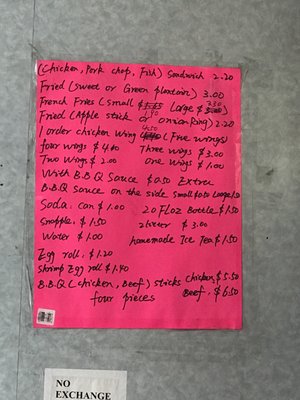 (Chicken, Pork chop, Fish) Sandwich 2.20
Fried (Sweet or Green plantain) 3.00
French Fries (Small $ Large $ 
Fried (Apple stick or onion Ring) 2.20
1 order chicken wing 4.50 (Five wings)
four wings $4.00 Three wings $3.00
Two wings $2.00 one wings $1.00
With B.B.Q Sauce $0.50 Extra
B.B.Q Sauce on the side Small 0.50 Large 1.00
Soda. can $1.00 20 Floz Bottle $1.50
Snapple. $1.50 2 liter $3.00
Water $1.00 homemade Ice Tea $1.50
Egg roll. $1.20
Shrimp Egg roll $1.40
B.B.Q (chicken, Beef) sticks chicken, $5.50
four pieces Beef. $6.50
NO
EXCHANGE